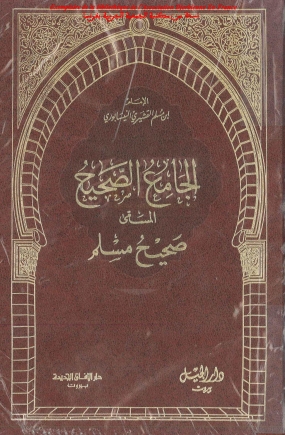 الإمام
ابن مسلم القشيري النيسابوري
الجامع الصحيح
المسمى
صحيح مسلم
دار الجيل
بيروت
دار الآفاق الجديدة
بيروت